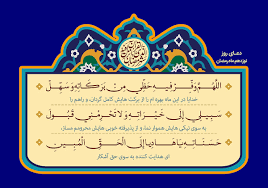 دعای روز
نوزدهم ماه رمضان
اللَّهُمَّ وَفِّرْ فِيهِ حَظِّي مِنْ بَرَكَاتِهِ وَسَهِّلْ
خدایا در این ماه بهره ام را از برکت هایش کامل گردان، و راهم را
سَبِيلِي إِلَى خَيْرَاتِهِ وَلَا تَحْرِمْنِي قَبُولَ
به سوی نیکی هایش هموار نما، و از پذیرفته خوبی هایش محرومم مساز،
حَسَنَاتِهِ يَا هَادِياً إِلَى الْحَقِّ الْمُبِينِ
ای هدایت کننده به سوی حق آشکار